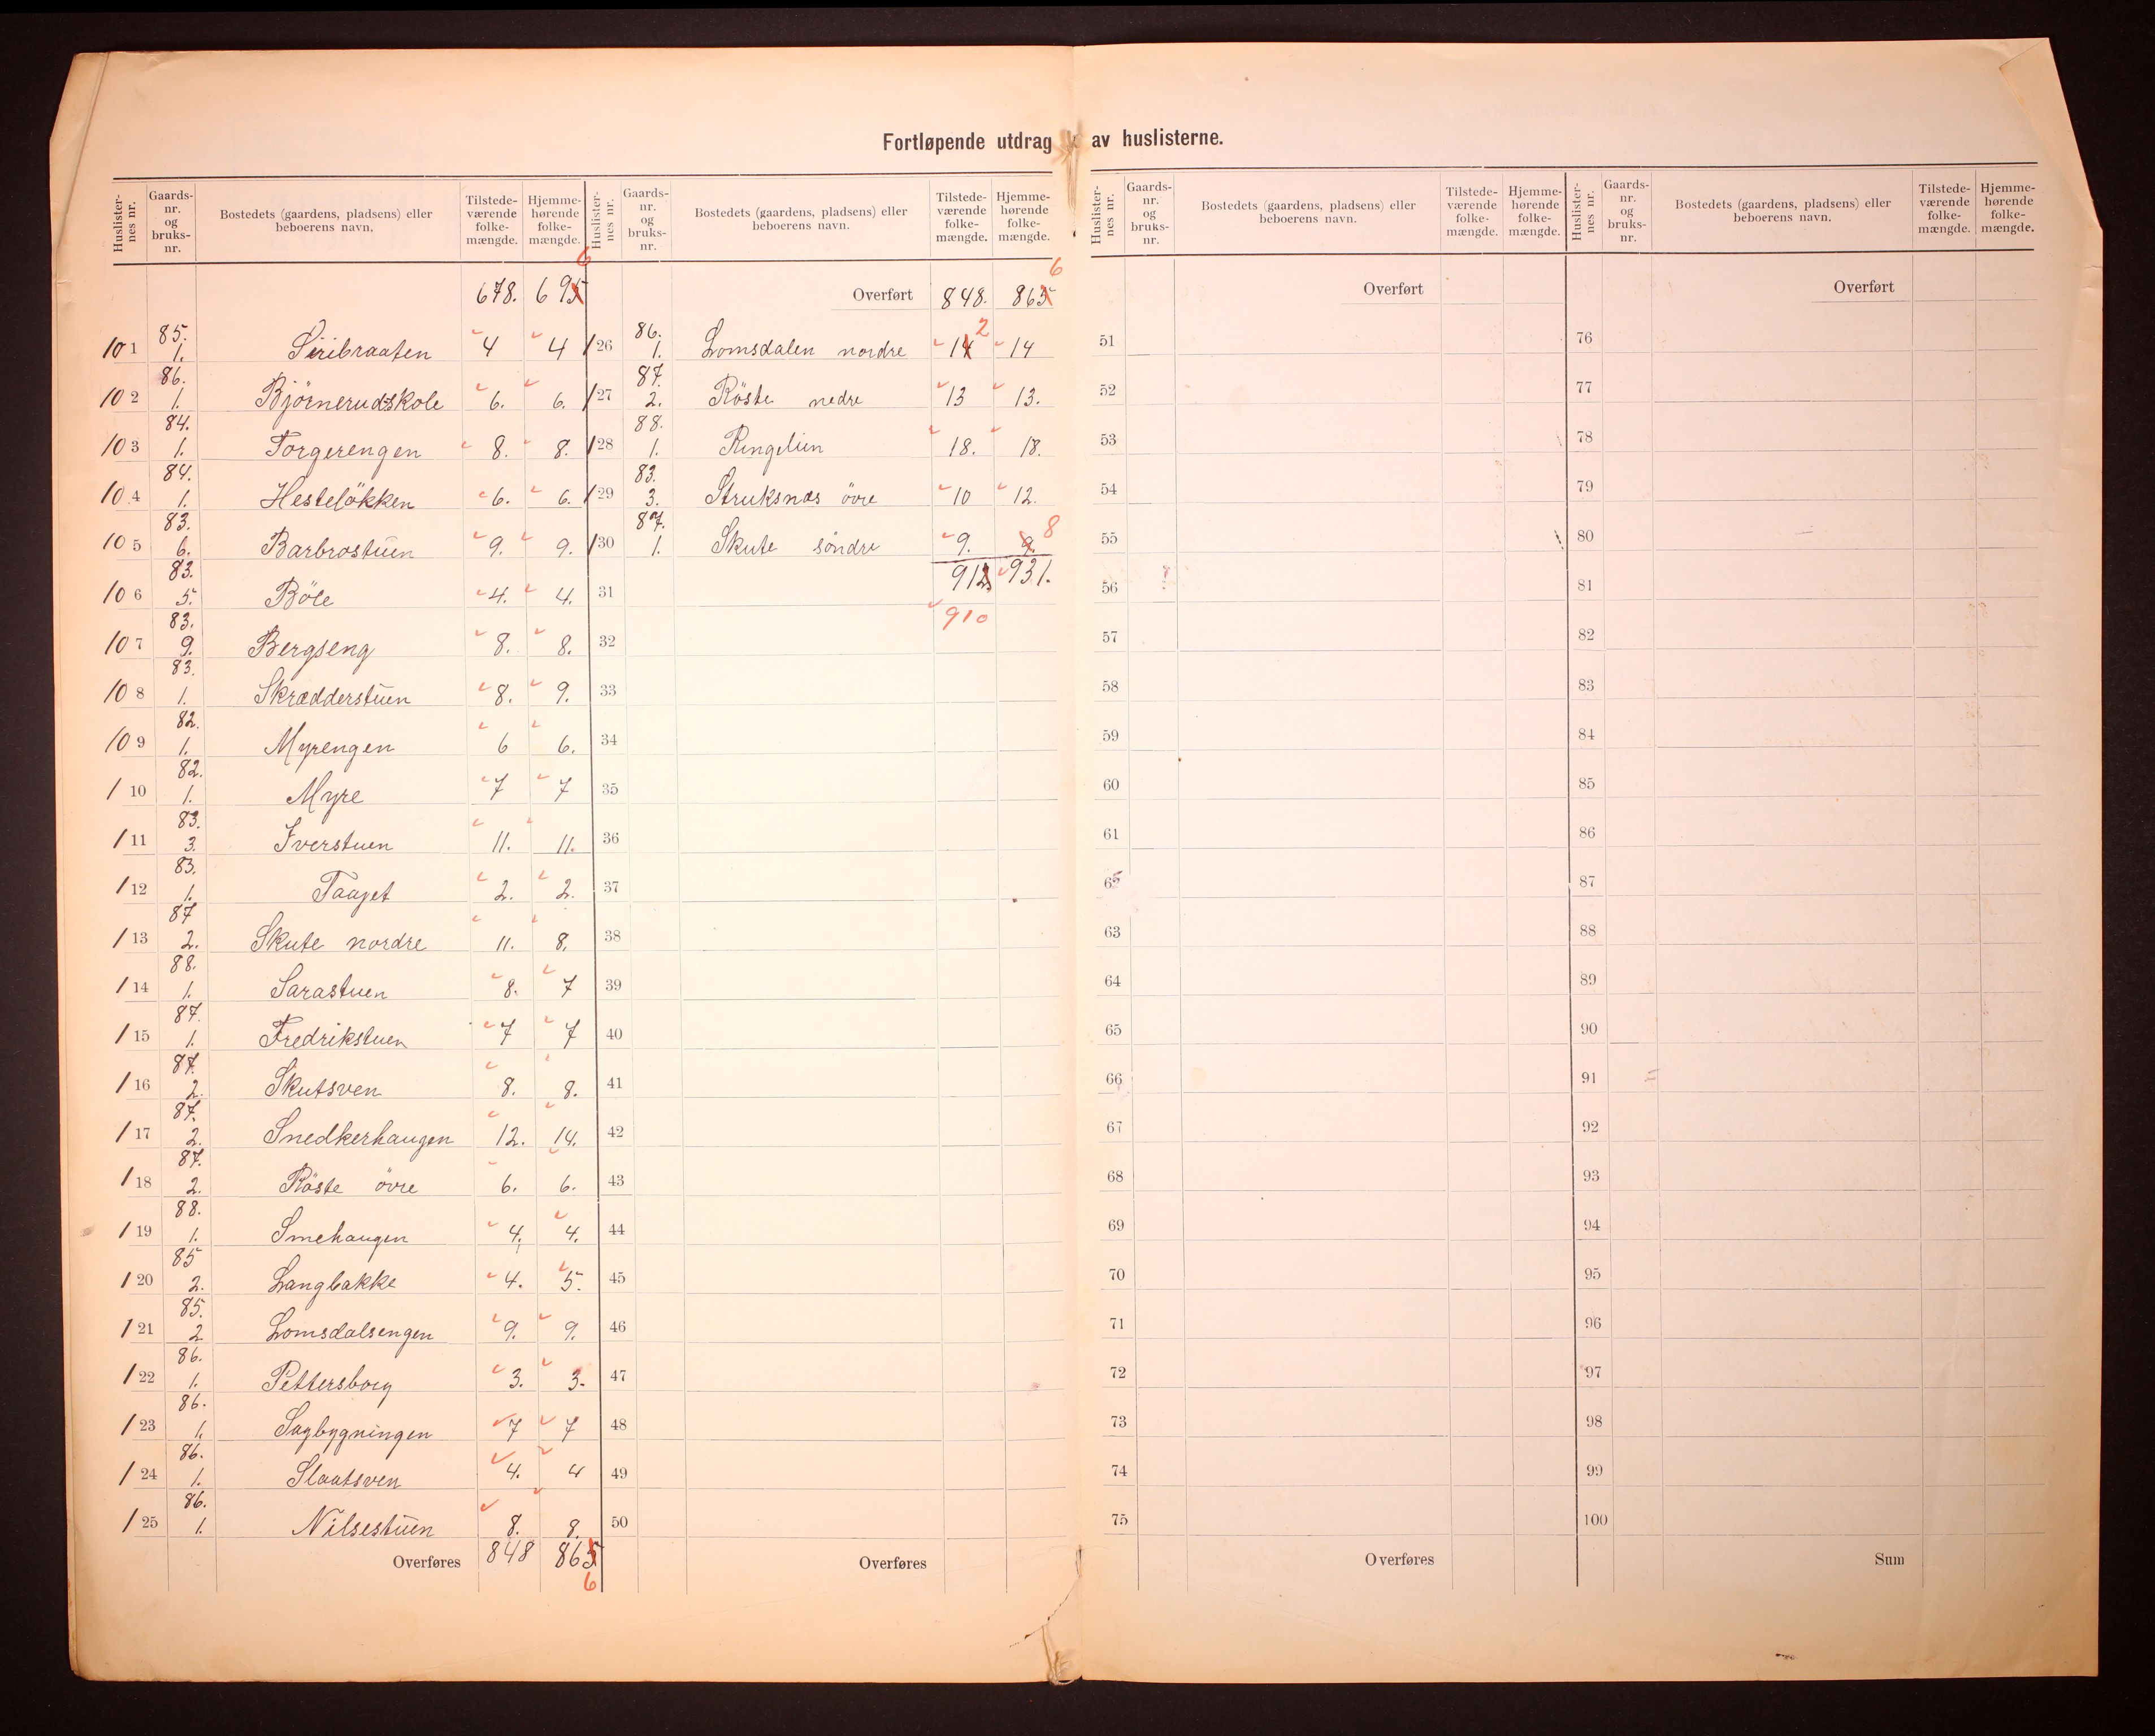 Fortløpende utdrag av huslisterne.
Huslisternes nr. | Gaards-nr. og bruks-nr. | Bostedets (gaardens, pladsens) eller beboerens navn. | Tilstedeværende folkemængde. | Hjemmehørende folkemængde.
678. 695 6
101 85. 1. Siribraaten 4 4
102 86. 1. Bjørnerudskole 6. 6.
103 84. 1. Torgerengen 8. 8.
104 84. 1. Hesteløkken 6. 6.
105 83. 6. Barbrostuen 9. 9.
106 83. 5. Böle 4. 4.
107 83. 9. Bergseng 8. 8.
108 83. 1. Skrædderstuen 8. 9.
109 82. 1. Myrengen 6 6.
110 82. 1. Myre 7 7
111 83. 3. Iverstuen 11. 11.
112 83. 1. Taajet 2. 2.
113 87 2. Skute nordre 11. 8.
114 88. 1. Sarastuen 8. 7
115 87. 1. Fredrikstuen 7 7
116 87. 2. Skutsven 8. 8.
117 87. 2. Snedkerhaugen 12. 14.
118 87. 2. Röste övre 6. 6.
119 88. 1. Smehaugen 4. 4.
120 85 2. Langbakke 4. 5.
121 85. 2 Lomsdalsengen 9. 9.
122 86. 1. Pettersborg 3. 3.
123 86. 1. Sagbygningen 7 7
124 86. 1. Slaatsven 4. 4
125 86. 1. Nilsestuen 8. 8.
Overføres 848 865 6
Huslisternes nr. | Gaards-nr. og bruks-nr. | Bostedets (gaardens, pladsens) eller beboerens navn. | Tilstedeværende folkemængde. | Hjemmehørende folkemængde.
Overført 848. 865 6
126 86. 1. Lomsdalen nordre 14 2 14
127 87. 2. Röste nedre 13 13.
128 88. 1. Ringelien 18. 18.
129 83. 3. Struksnæs övre 10 12.
130 87. 1. Skute söndre 9. 9. 8
31 912 931.
910
32
33
34
35
36
37
38
39
40
41
42
43
44
45
46
47
48
49
50
Overføres
Huslisternes nr. | Gaards-nr. og bruks-nr. | Bostedets (gaardens, pladsens) eller beboerens navn. | Tilstedeværende folkemængde. | Hjemmehørende folkemængde.
Overført
51
52
53
54
55
56
57
58
59
60
61
62
63
64
65
66
67
68
69
70
71
72
73
74
75
Overføres
Huslisternes nr. | Gaards-nr. og bruks-nr. | Bostedets (gaardens, pladsens) eller beboerens navn. | Tilstedeværende folkemængde. | Hjemmehørende folkemængde.
Overført
76
77
78
79
80
81
82
83
84
85
86
87
88
89
90
91
92
93
94
95
96
97
98
99
100
Sum